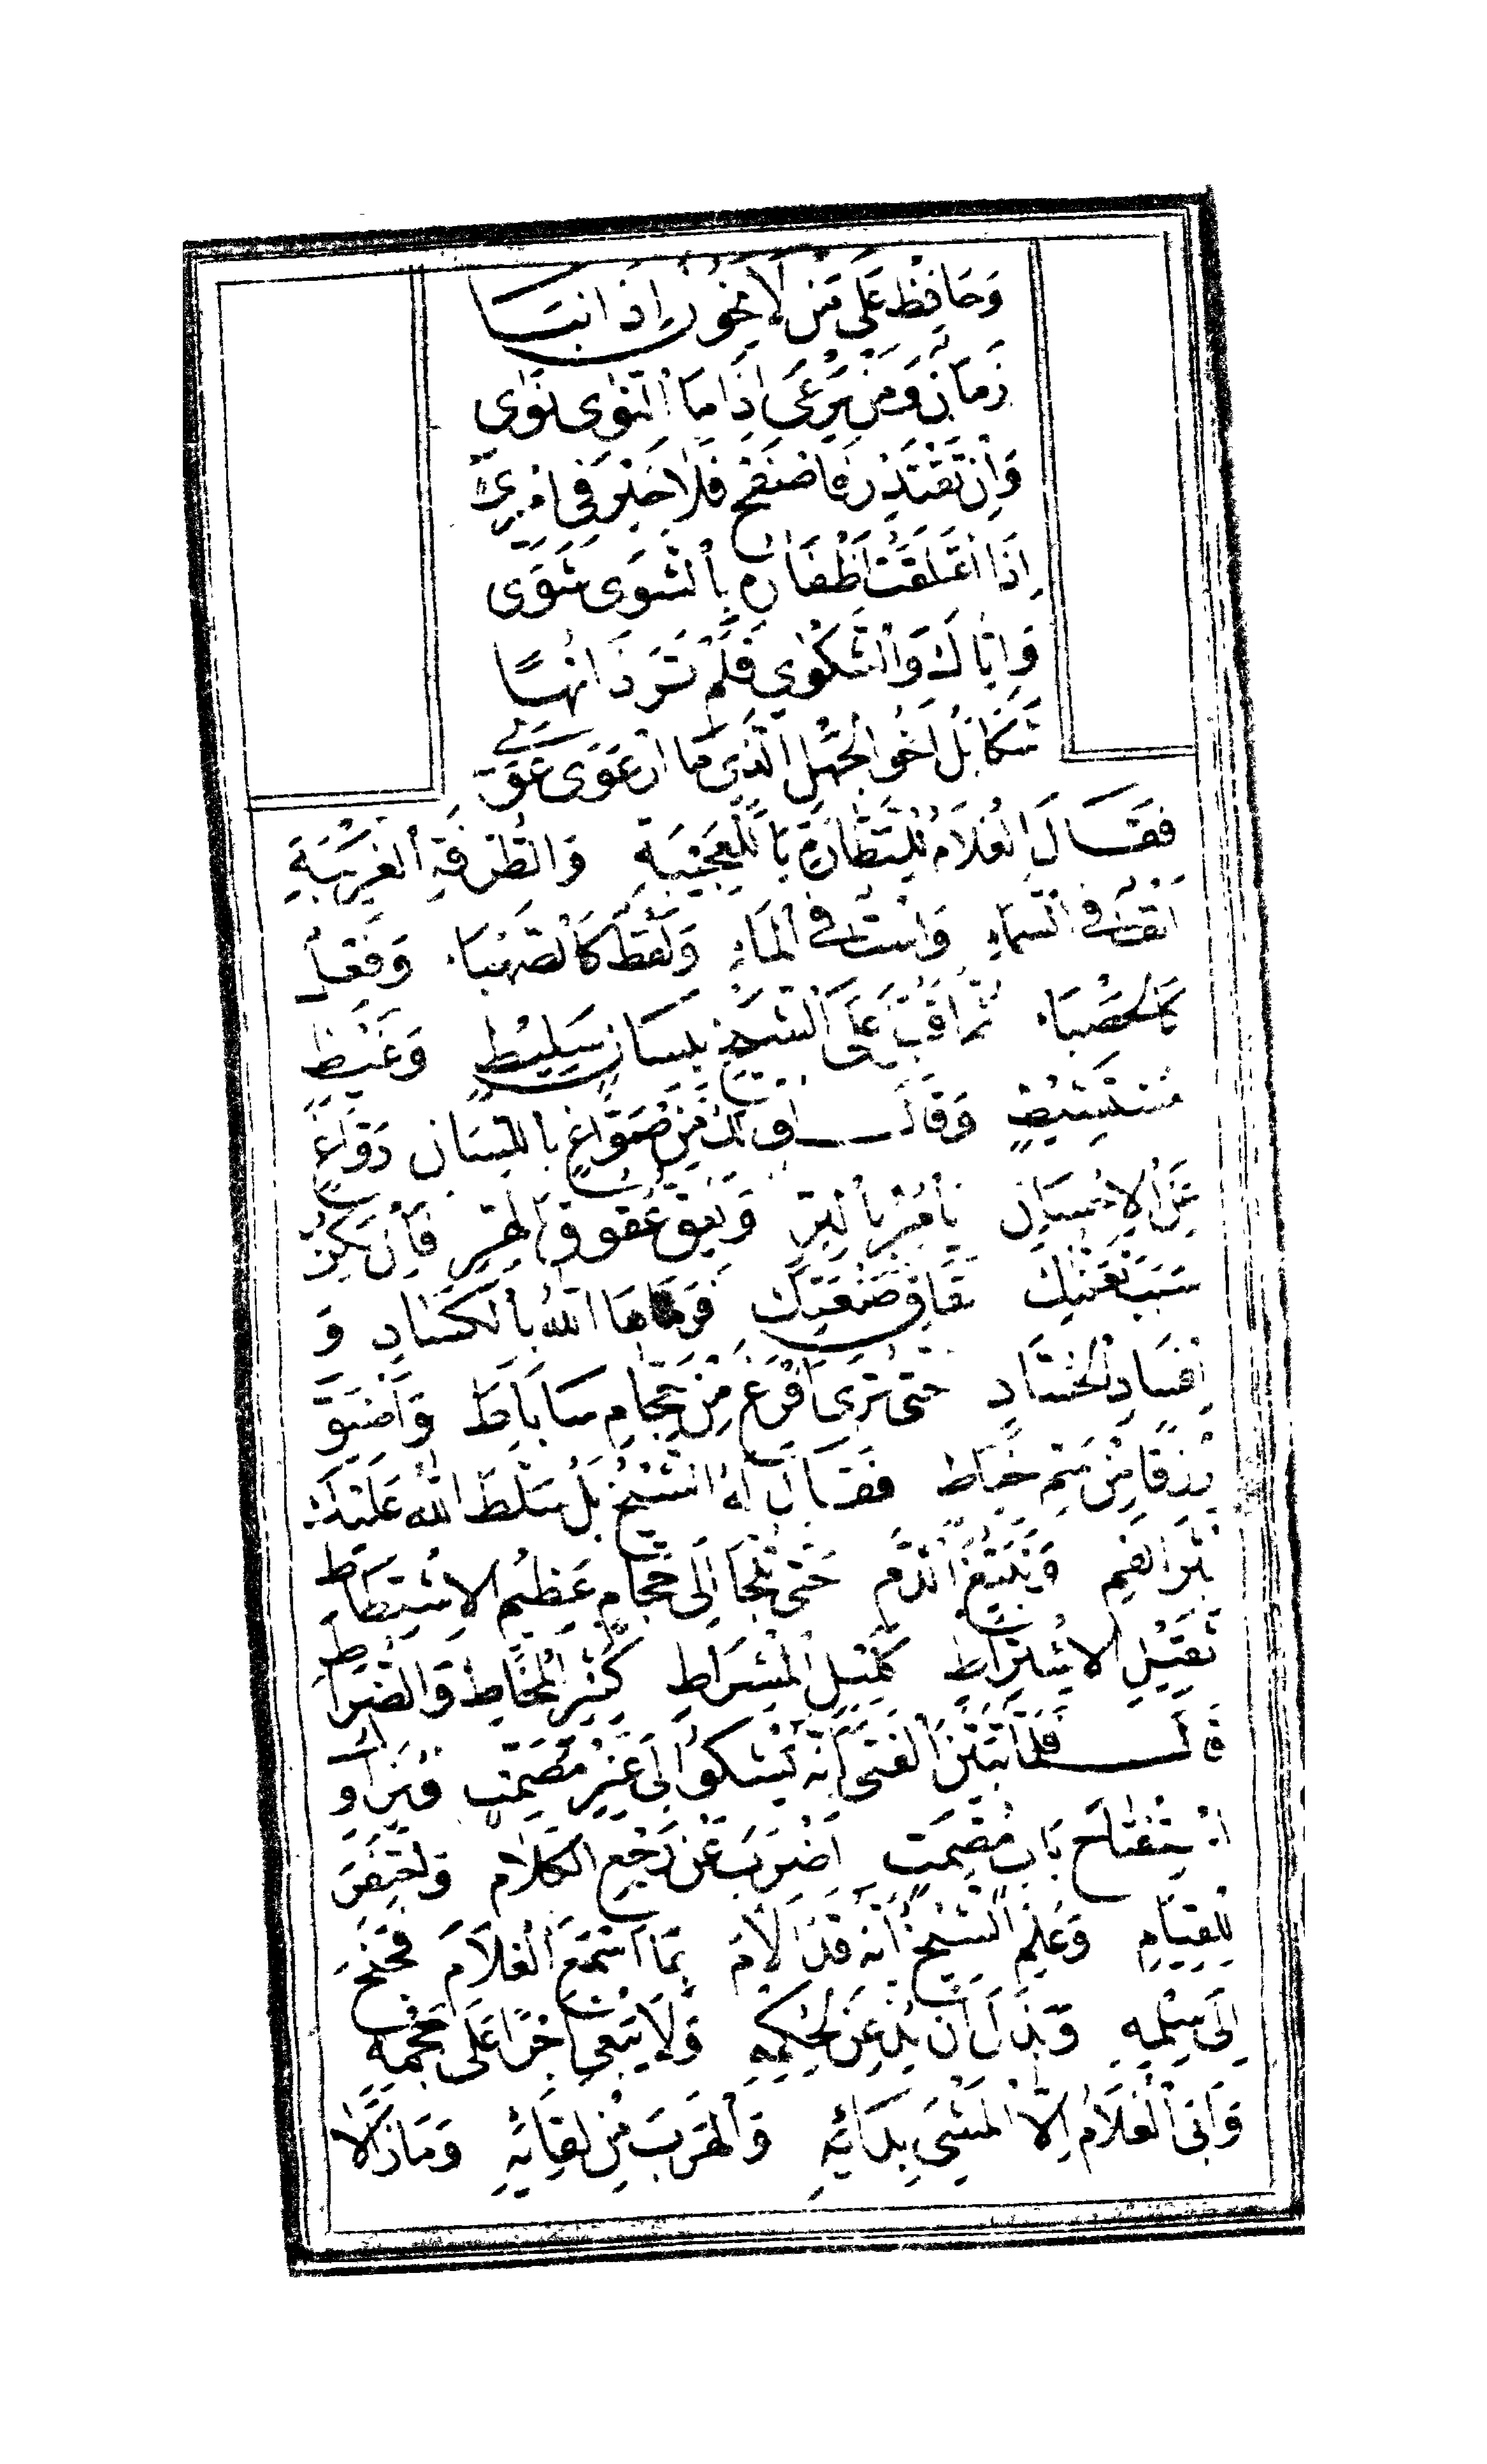 وَحَافِظْ عَلَى مَنْ لَا يَخُونُ إِذَا نَبَا
زَمَانٌ وَمَنْ يَرْعَى إِذَا مَا النَّوَى نَوَى
وَإِنْ تَقْتَدِرْ فَاصْفَحْ فَلَا خَيْرَ فِي امْرِئٍ
إِذَا اعْتَلَقَتْ أَظْفَارُهُ بِالشَّوَى شَوَى
وَإِيَّاكَ وَالشَّكْوَى فَلَمْ تَرَ ذَا نُهًى
شَكَا بَلْ أَخُو الْجَهْلِ الَّذِي مَا ارْعَوَى عَوَى
فَقَالَ الْغُلَامُ لِلنَّظَّارَةِ يَا لَلْعَجِيبَةِ وَالطُّرْفَةِ الْغَرِيبَةِ
أَنْفٌ فِي السَّمَاءِ وَاسْتٌ فِي الْمَاءِ وَلَفْظٌ كَالصَّهْبَاءِ وَفِعْلٌ
كَالْحَصْبَاءِ ثُمَّ أَقْبَلَ عَلَى الشَّيْخِ بِلِسَانٍ سَلِيطٍ وَغَيْظٍ
مُسْتَشِيطٍ وَقَالَ أُفٍّ لَكَ مِنْ صَوَّاغٍ بِاللِّسَانِ رَوَّاغٍ
عَنِ الْإِحْسَانِ تَأْمُرُ بِالْبِرِّ وَتَعُقُّ عُقُوقَ الْهِرِّ فَإِنْ يَكُنْ
سَبَبُ تَعَنُّتِكَ نَفَاقَ صَنْعَتِكَ فَرَمَاهَا اللّٰهُ بِالْكَسَادِ وَ
إِفْسَادِ الْحُسَّادِ حَتَّى تُرَى أَفْرَغَ مِنْ حَجَّامِ سَابَاطَ وَأَضْيَقَ
رِزْقًا مِنْ سَمِّ خِيَاطٍ فَقَالَ لَهُ الشَّيْخُ بَلْ سَلَّطَ اللّٰهُ عَلَيْكَ
بَثْرَ الْفَمِ وَتَبَيُّغَ الدَّمِ حَتَّى تُلْجَأَ إِلَى حَجَّامٍ عَظِيمِ الْاِشْتِطَاطِ
ثَقِيلِ الْاِشْتِرَاطِ كَلِيلِ الْمِشْرَاطِ كَثِيرِ الْمُخَاطِ وَالضُّرَاطِ
قَالَ فَلَمَّا تَبَيَّنَ الْفَتَى أَنَّهُ يَشْكُو إِلَى غَيْرِ مُصْمِتٍ وَيُرَاوِدُ
اسْتِفْتَاحَ بَابٍ مُصْمَتٍ أَضْرَبَ عَنْ رَجْعِ الْكَلَامِ وَاحْتَفَزَ
لِلْقِيَامِ وَعَلِمَ الشَّيْخُ أَنَّهُ قَدْ أَلَامَ بِمَا أَسْمَعَ الْغُلَامَ فَجَنَحَ
إِلَى سِلْمِهِ وَبَذَلَ أَنْ يُذْعِنَ لِحُكْمِهِ وَلَا يَبْغِيَ أَجْرًا عَلَى حَجْمِهِ
وَأَبَى الْغُلَامُ إِلَّا الْمَشْيَ بِدَائِهِ وَالْهَرَبَ مِنْ لِقَائِهِ وَمَا زَالَا